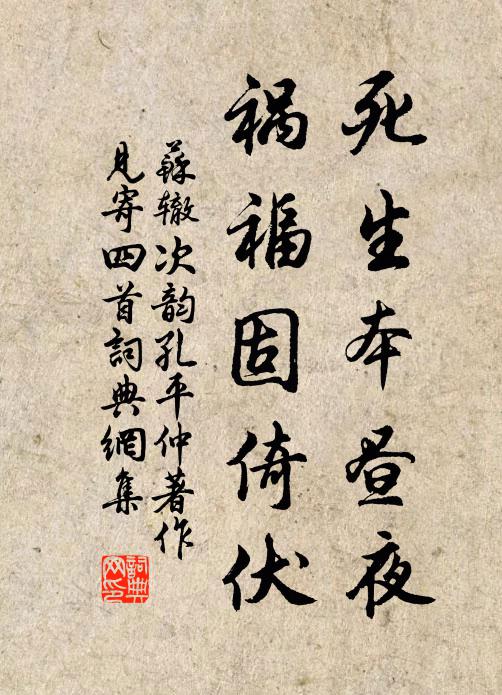 死生本昼夜
祸福固倚伏
蘇辙次韵孔平仲著作
見寄四首詞典網集
詞典网印